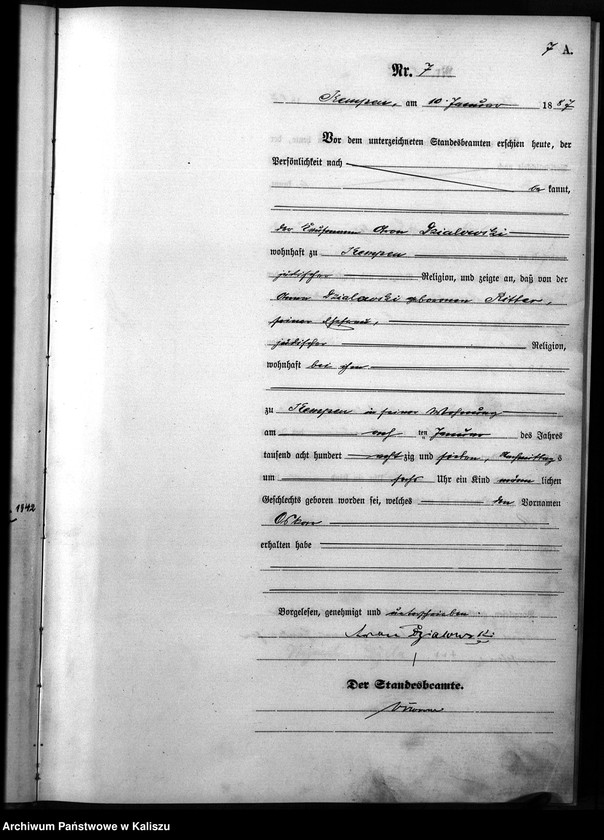 7 A.
Nr. 7
Kempen, am 10. Januar 1887
Vor dem unterzeichneten Standesbeamten erschien heute, der
Persönlichkeit nach
be kannt,
der Kaufmann Aron Dzialowski
wohnhaft zu Kempen
jüdischer Religion, und zeigte an, daß von der
Dzialowski geborenen Ritter,
seiner Ehefrau,
jüdischer Religion,
wohnhaft bei ihm
zu Kempen in seiner Wohnung
am ten Januar des Jahres
tausend acht hundert acht zig und sieben, Nachmittags
um sechs Uhr ein Kind männ lichen
Geschlechts geboren worden sei, welches den Vornamen
Oskar
erhalten habe
Vorgelesen, genehmigt und unterschrieben.
Aron Dzialowski
Der Standesbeamte.
1842
Archiwum Państwowe w Kaliszu